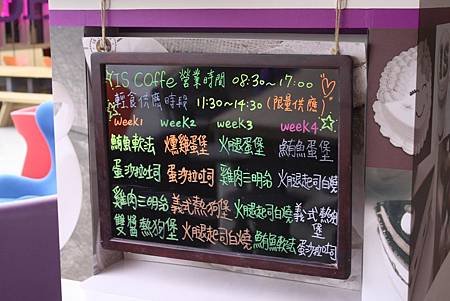 YIS Coffe 營業時間 08:30~17:00
輕食供應時段 11:30~14:30 (限量供應)
week1 week2 week3 week4
鮪魚軟法 燻雞蛋堡 火腿蛋堡 鮪魚蛋堡
蛋沙拉吐司 蛋沙拉吐司 雞肉三明治 火腿起司白燒
雞肉三明治 義式熱狗堡 火腿起司白燒 義式熱狗堡
雙醬熱狗堡 火腿起司白燒 鮪魚軟法 蛋沙拉吐司